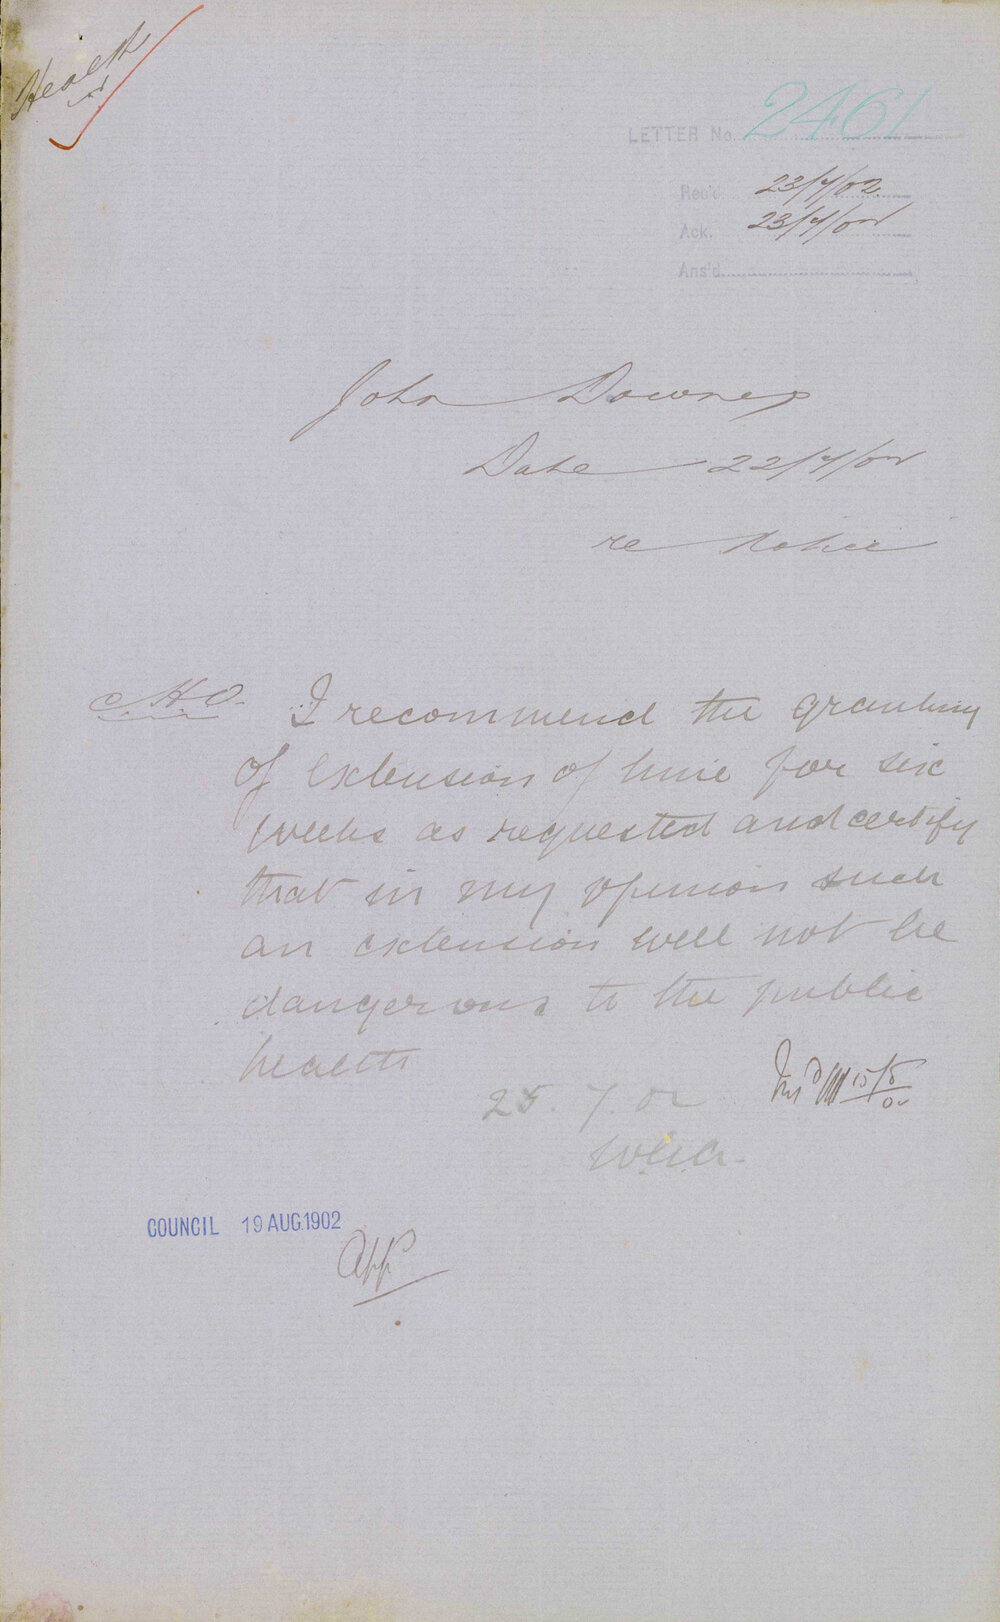 Health
LETTER No. 2461
Rec'd 23/7/02
Ack. 23/7/02
Ans'd
John Downes
Date 22/7/02
re Notice
C.H.O. I recommend the granting
of extension of time for six
weeks as requested and certify
that in my opinion such
an extension will not be
dangerous to the public
health
25.7.02
15/8/02
COUNCIL 19 AUG.1902
App^d